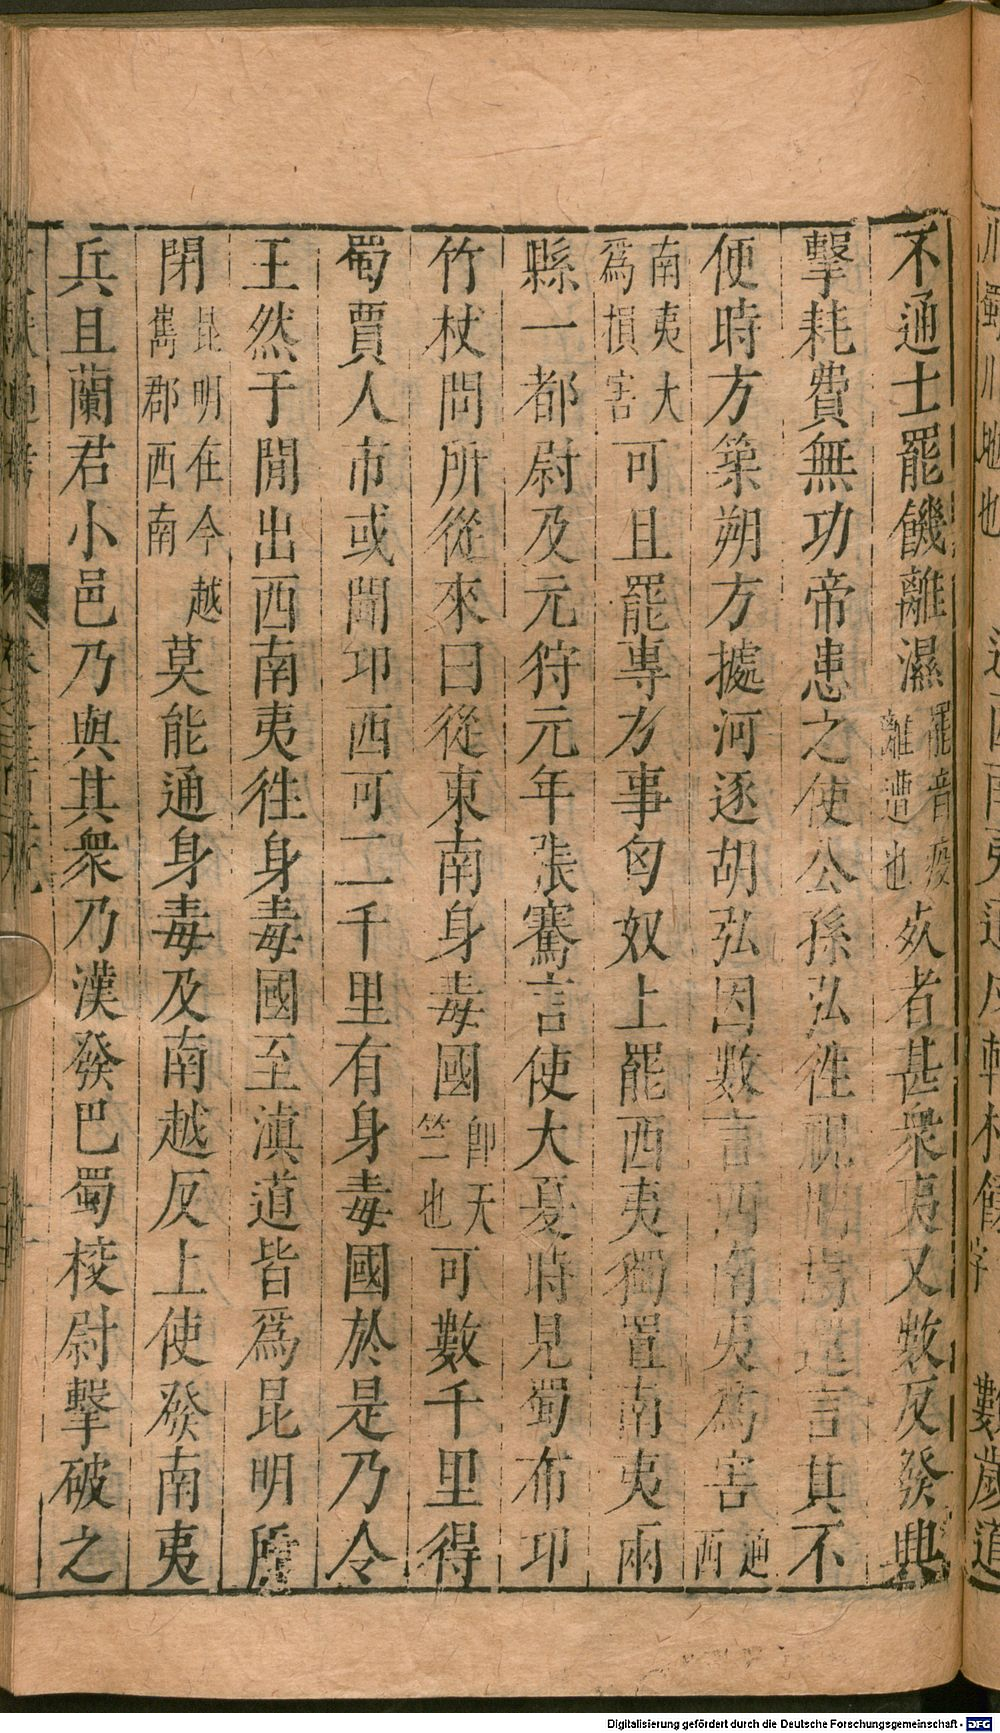 不通士罷饑離濕罷音疫離遭也死者甚衆夷又數反發興
擊耗費無功帝患之使公孫弘徃視問焉還言其不
便時方築朔方據河逐胡弘因數言西南夷爲害通西
南夷大爲損害可且罷專力事匈奴上罷西夷獨置南夷兩
縣一都尉及元狩元年張騫言使大夏時見蜀布卭
竹杖問所從來曰從東南身毒國即天竺也可數千里得
蜀賈人市或聞卭西可二千里有身毒國於是乃令
王然于閒出西南夷徃身毒國至滇道皆爲昆明所
閉昆明在今越嶲郡西南莫能通身毒及南越反上使發南夷
兵且蘭君小邑乃與其衆乃漢發巴蜀校尉擊破之
Digitalisierung gefördert durch die Deutsche Forschungsgemeinschaft - DFG